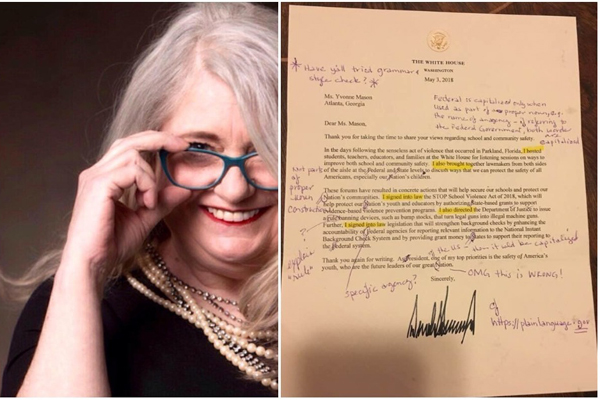 THE WHITE HOUSE
WASHINGTON
May 3, 2018
* Have y'all tried grammar &
style check? *
Ms. Yvonne Mason
Atlanta, Georgia
Federal is capitalized only when
used as part of a proper noun, e.g.
the name of an agency - if referring to
the Federal Government, both words
are
capitalized
Dear Ms. Mason,
Thank you for taking the time to share your views regarding school and community safety.
In the days following the senseless act of violence that occurred in Parkland, Florida, I hosted
students, teachers, educators, and families at the White House for listening sessions on ways to
improve both school and community safety. I also brought together lawmakers from both sides
of the aisle at the Federal and State levels to discuss ways that we can protect the safety of all
Americans, especially our Nation's children.
Not part
of
proper
noun
These forums have resulted in concrete actions that will help secure our schools and protect our
Nation's communities. I signed into law the STOP School Violence Act of 2018, which will
help protect our Nation's youth and educators by authorizing State-based grants to support
evidence-based violence prevention programs. I also directed the Department of Justice to issue
devices, such as bump stocks, that turn legal guns into illegal machine guns.
Further, I signed into law legislation that will strengthen background checks by enhancing the
accountability of Federal agencies for reporting relevant information to the National Instant
Background Check System and by providing grant money to States to support their reporting to
the Federal system.
explain
"rule"
then it would be capitalized
Thank you again for writing. As President, one of my top priorities is the safety of America's
youth, who are the future leaders of our great Nation.
OMG this is WRONG!
Sincerely,
specific agency?
cf
https://plainlanguage.gov